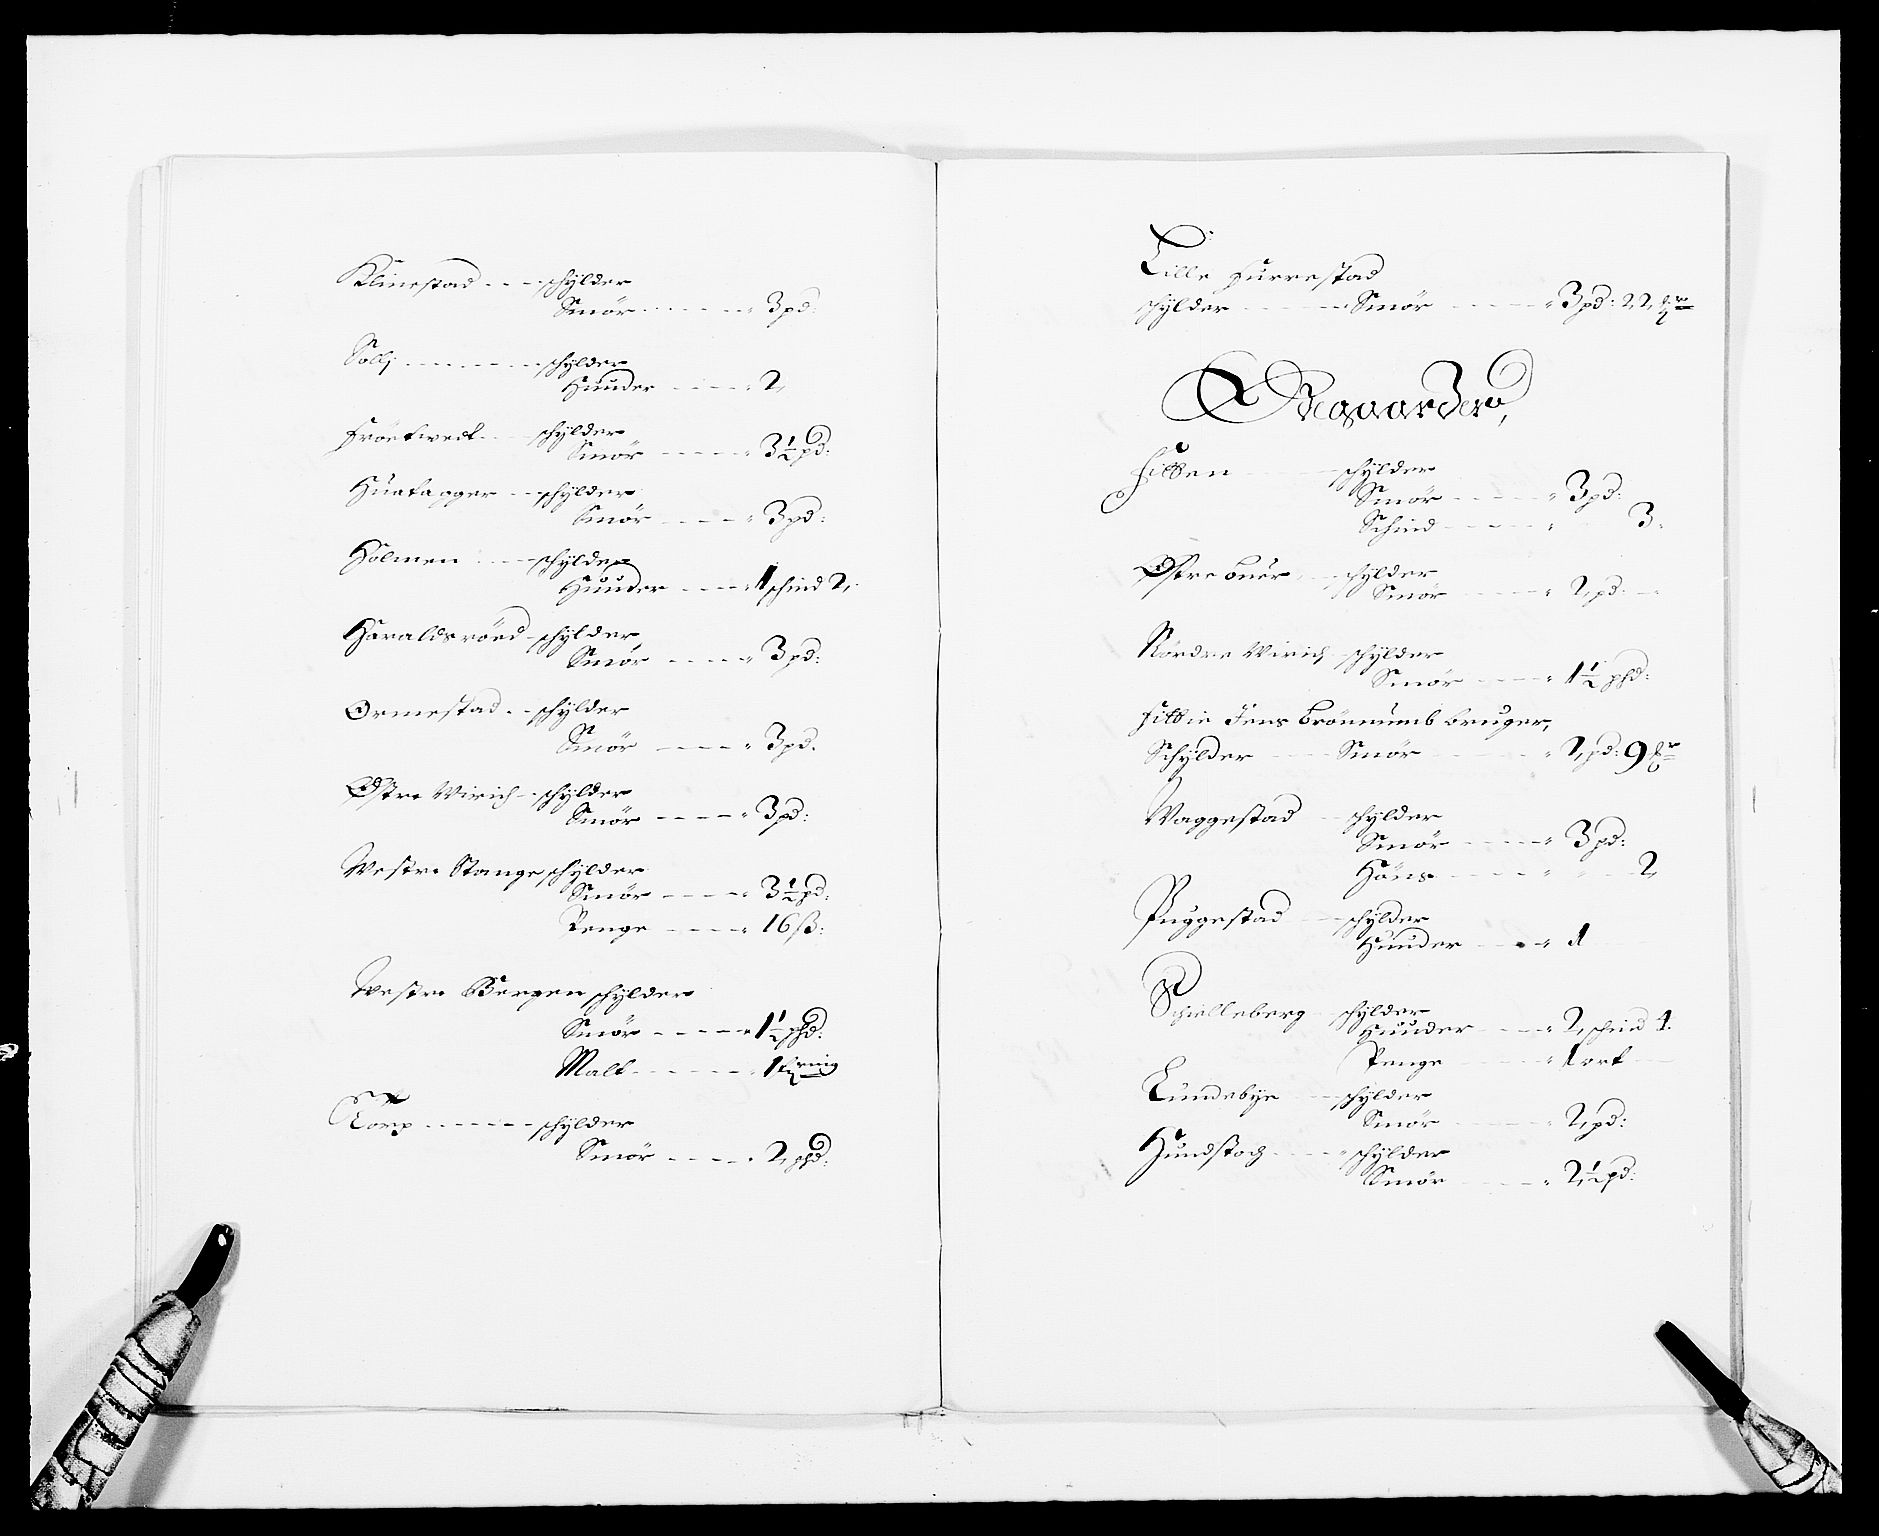 Klinestad - - - schylder
Smör - - - - - - 3 pd:
Solli - - - - - - - schylder
Huuder - - - - 2
Fröetwedt - - - schylder
Smör - - - - - 3½ pd:
Huataager - - schylder
Smör - - - - 3 pd:
Holmen - - - schylder
Huuder - - - - 1 schind 2,
Haraldsröed - schylder
Smör - - - - 3 pd:
Ormestad - - schylder
Smör - - - - 3 pd.
Östre Wirich - schylder
Smör - - - - 3 pd:
Westre Stange schylder
Smör - - - - 3½ pd:
Penge - - - - 16 ß:
Westre Bergen schylder
Smör - - - - - 1½ phd:
Malt - - - - - - 1 fiering
Torp - - - - - - schylder
Smör - - - - 2 phd:
Lille Furrestad
schylder - - - - - Smör - - - - - 3 pd: 22
Ödegaarder,
schylder
Smör - - - - 3 pd:
Schind - - - - 3
Östre buer - - schylder
Smör - - - - 2 pd:
Nördre Wirich - schylder
Smör - - - - 1½ phd:
Jens Brönnumb bruger,
Schylder - - - Smör - - - - - 2 pd: 9
Waggestad - - schylder
Smör - - - - 3 pd:
Höns - - - - 2
Puggestad - - schylder
Huuder - - - 1
Schielleberg - schylder
Huuder - - - 2 schind 4.
Penge - - - - 1 ort
Lundebye - - schylder
Smör - - - - 2 pd:
Hundstoch - - - - schylder
Smör - - - - 2½ pd: